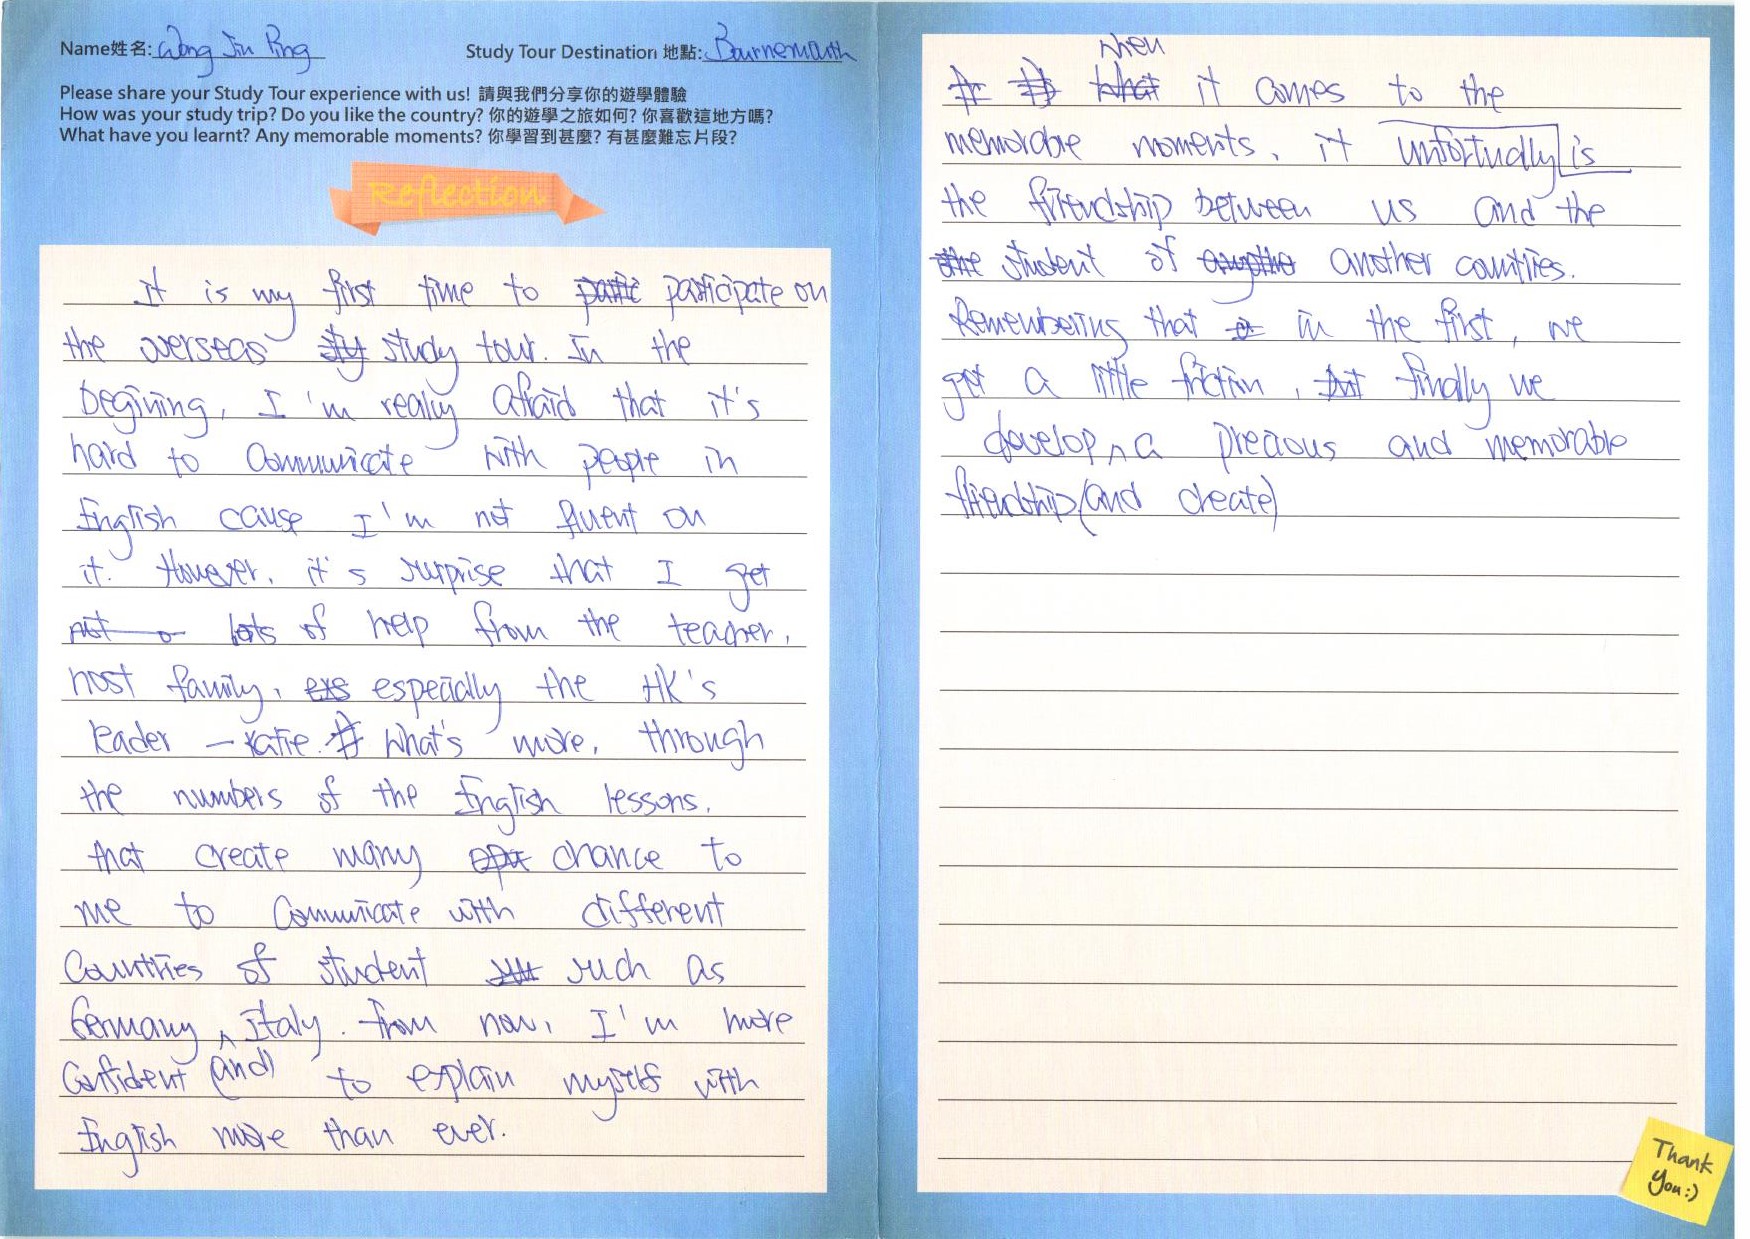 Name姓名: Wong Jin Ping
Study Tour Destination 地點: Bournemouth
Please share your Study Tour experience with us! 請與我們分享你的遊學體驗
How was your study trip? Do you like the country? 你的遊學之旅如何? 你喜歡這地方嗎?
What have you learnt? Any memorable moments? 你學習到甚麼? 有甚麼難忘片段?
Reflection
It is my first time to participate on
the overseas study tour. In the
begining, I'm really afraid that it's
hard to communicate with people in
English cause I'm not fluent on
it. However, it's surprise that I get
lots of help from the teacher,
host family, especially the HK's
leader - Katie. What's more, through
the numbers of the English lessons,
that create many chance to
me to communicate with different
countries of student such as
Germany ^ Italy. From now, I'm more
confident (and) to explain myself with
English more than ever.
when
it comes to the
memorable moments, it unfortually is
the friendship between us and the
student of another countries.
Remembering that in the first, we
get a little friction, finally we
develop ^ a precious and memorable
friendship (and create)
Thank
You :)